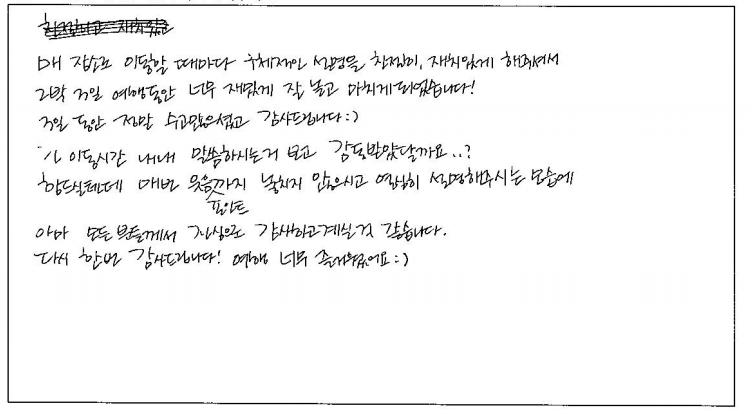 매 장소로 이동할 때마다 구체적인 설명을 친절히, 재치있게 해주셔서
2박 3일 여행동안 너무 재밌게 잘 놀고 마치게되었습니다!
3일 동안 정말 수고많으셨고 감사드립니다:)
이동시간 내내 말씀하시는거 보고 감동받았달까요..?
힘드실텐데 매번 웃음까지 놓치지 않으시고 열심히 설명해주시는 모습에
포인트
아마 모든 분들께서 진심으로 감사하고계실 것 같습니다.
다시 한번 감사드립니다! 여행 너무 즐거웠어요:)